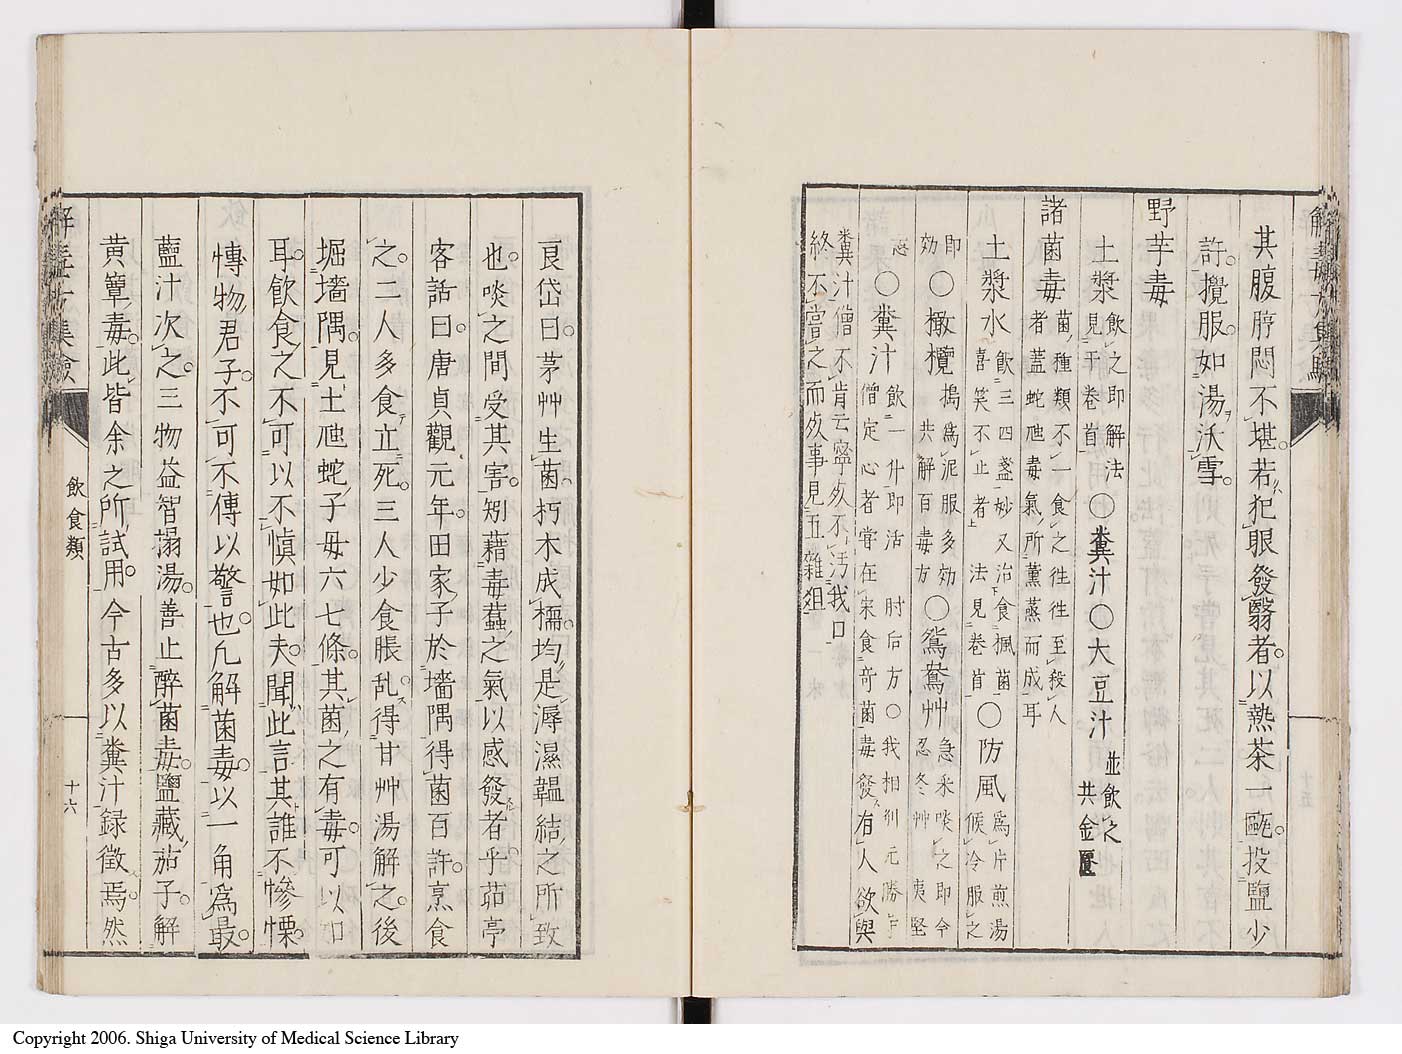 其腹脝悶不堪若犯眼發翳者以熱茶一甌投鹽少
許攪服如湯沃雪
野芋毒
土漿飲之即解法見于卷首○糞汁○大豆汁並飲之共金匱
諸菌毒菌種類不一食之往往至殺人者蓋蛇虺毒氣所薰蒸而成耳
土漿水飲三四盞妙又治食楓菌喜笑不止者法見卷首○防風為片煎湯候冷服之
即効○橄欖搗為泥服多効共解百毒方○鴛鴦艸急采啖之即今忍冬艸夷堅
志○糞汁飲一升即活肘后方○我相州元勝寺僧定心者嘗在宋食奇菌毒發有人欲與
糞汁僧不肯云寧死不汚我口
終不嘗之而死事見五雜俎
解毒方集驗
十五
艮岱曰茅艸生菌朽木成檽均是溽濕韞結之所致
也啖之間受其害矧藉毒蠚之氣以感發者乎茆亭
客話曰唐貞觀元年田家子於墻隅得菌百許烹食
之二人多食立死三人少食脹乱得甘艸湯解之後
堀墻隅見土虺蛇子母六七條其菌之有毒可以知
耳飲食之不可以不慎如此夫聞此言其誰不慘慄
慱物君子不可不傳以警也凡解菌毒以一角為最
虀汁次之三物益智搨湯善止醉菌毒鹽藏茄子解
黄蕈毒此皆余之所試用今古多以糞汁録徵焉然
解毒方集驗
飲食類
十六
Copyright 2006. Shiga University of Medical Science Library